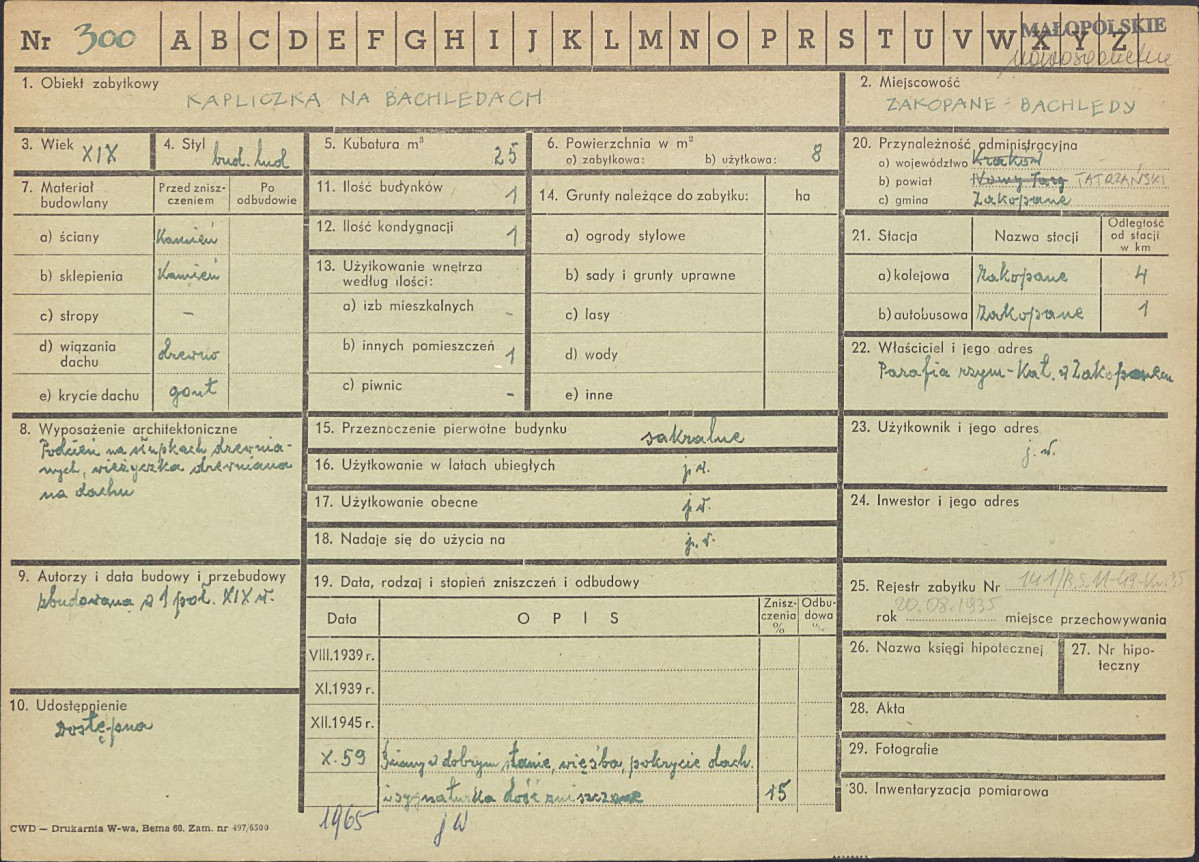 Nr 300 A B C D E F G H I J K L M N O P R S T U V W X Y Z
MAŁOPOLSKIE
1. Obiekt zabytkowy
KAPLICZKA NA BACHLEDACH
2. Miejscowość
ZAKOPANE - BACHLEDY
3. Wiek XIX
4. Styl bud. lud
5. Kubatura m³ 25
6. Powierzchnia w m²
a) zabytkowa: b) użytkowa: 8
20. Przynależność administracyjna
a) województwo Kraków
b) powiat Nowy Targ TATRZAŃSKI
c) gmina Zakopane
7. Materiał budowlany
Przed zniszczeniem
Po odbudowie
a) ściany Kamień
b) sklepienia Kamień
c) stropy –
d) wiązania dachu drewno
e) krycie dachu gont
11. Ilość budynków 1
12. Ilość kondygnacji 1
13. Użytkowanie wnętrza
według ilości:
a) izb mieszkalnych -
b) innych pomieszczeń 1
c) piwnic -
14. Grunty należące do zabytku: ha
a) ogrody stylowe
b) sady i grunty uprawne
c) lasy
d) wody
e) inne
21. Stacja Nazwa stacji Odległość od stacji w km
a) kolejowa Zakopane 4
b) autobusowa Zakopane 1
22. Właściciel i jego adres
Parafia rzym-Kat. w Zakopanem
8. Wyposażenie architektoniczne
Podcień na słupkach drewnia-
nych, wieżyczka drewniana
na dachu
15. Przeznaczenie pierwotne budynku sakralne
16. Użytkowanie w latach ubiegłych j.w.
17. Użytkowanie obecne j.w.
18. Nadaje się do użycia na j.w.
23. Użytkownik i jego adres
j.w.
24. Inwestor i jego adres
9. Autorzy i data budowy i przebudowy
zbudowana w 1 poł. XIX w.
19. Data, rodzaj i stopień zniszczeń i odbudowy
Data OPIS Zniszczenia % Odbudowa %
VIII.1939 r.
XI.1939 r.
XII.1945 r.
X.59 Ściany w dobrym stanie, więźba, pokrycie dach.
i sygnaturka dość zniszczone 15
25. Rejestr zabytku Nr
20.08.1935
rok miejsce przechowywania
26. Nazwa księgi hipotecznej
27. Nr hipoteczny
28. Akta
29. Fotografie
30. Inwentaryzacja pomiarowa
10. Udostępnienie
Dostępna
CWD — Drukarnia W-wa, Bema 60. Zam. nr 497/6500
1965 jw